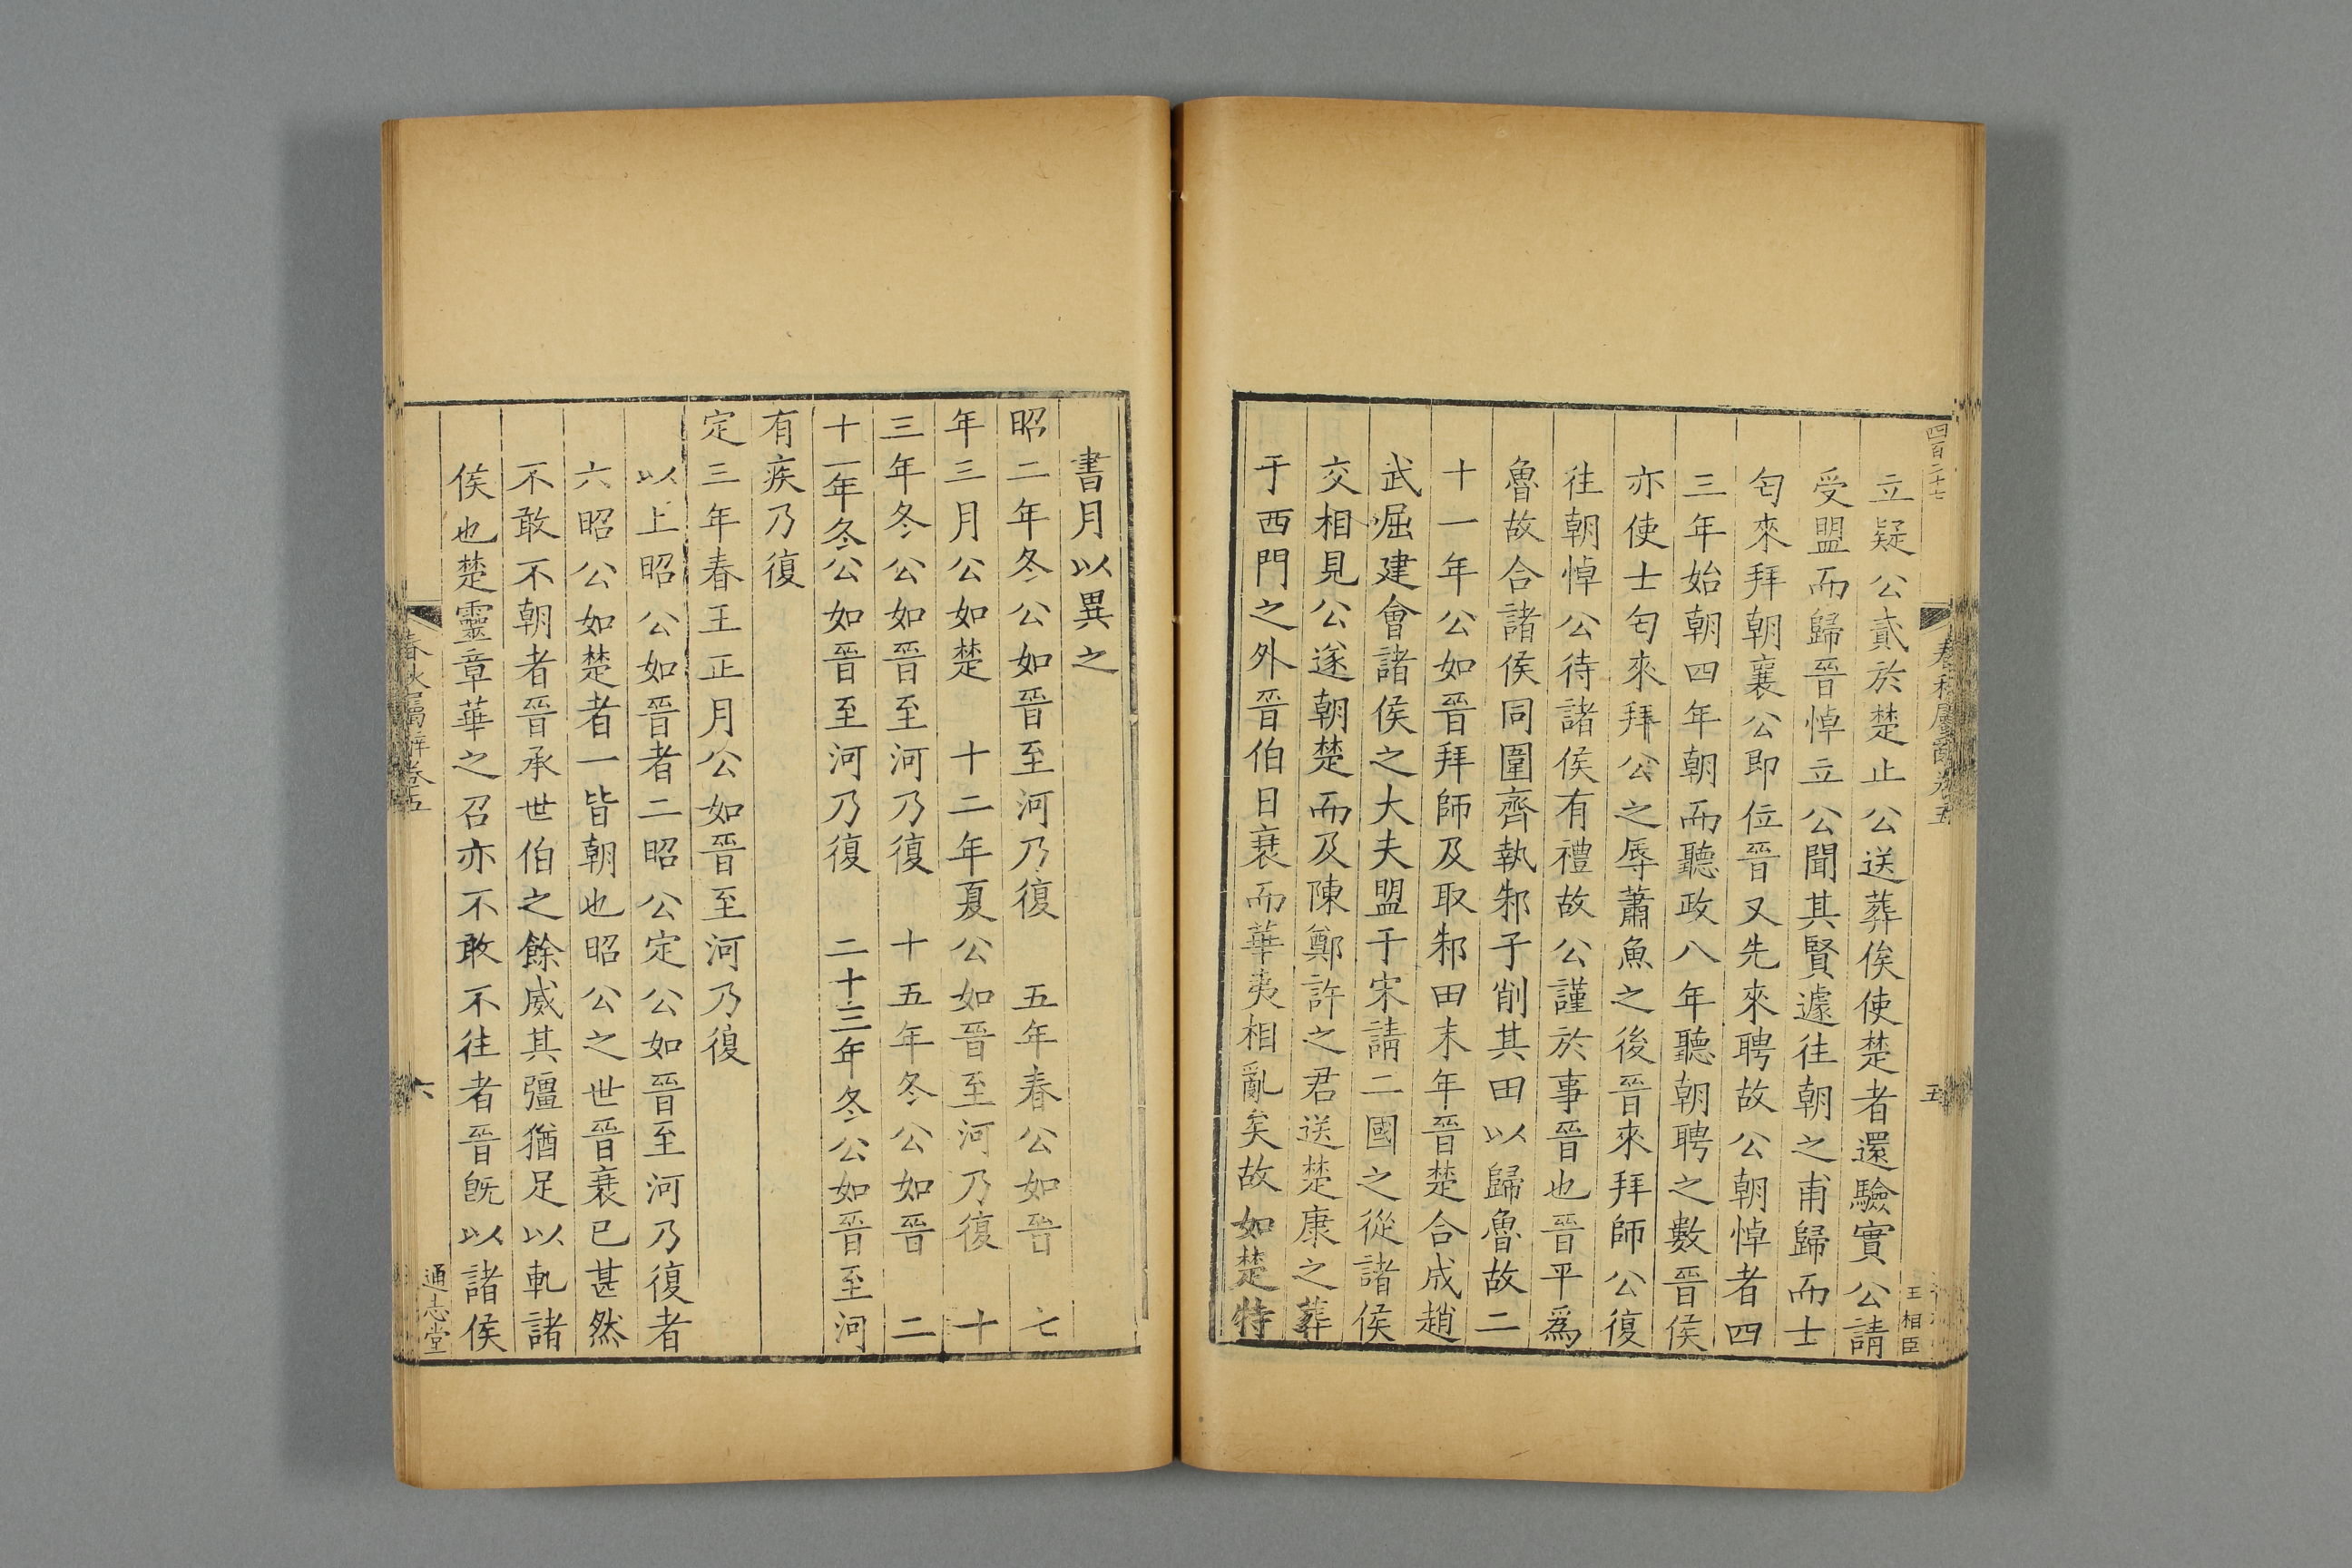 四百二十七
春秋屬辭卷五
五
王相臣
立疑公貳於楚止公送葬俟使楚者還驗實公請
受盟而歸晉悼立公聞其賢遽往朝之甫歸而士
匄來拜朝襄公即位晉又先來聘故公朝悼者四
三年始朝四年朝而聽政八年聽朝聘之數晉侯
亦使士匄來拜公之辱蕭魚之後晉來拜師公復
往朝悼公待諸侯有禮故公謹於事晉也晉平爲
魯故合諸侯同圍齊執邾子削其田以歸魯故二
十一年公如晉拜師及取邾田末年晉楚合成趙
武屈建會諸侯之大夫盟于宋請二國之從諸侯
交相見公遂朝楚而及陳鄭許之君送楚康之葬
于西門之外晉伯日衰而華夷相亂矣故如楚特
書月以異之
昭二年冬公如晉至河乃復 五年春公如晉 七
年三月公如楚 十二年夏公如晉至河乃復 十
三年冬公如晉至河乃復 十五年冬公如晉 二
十一年冬公如晉至河乃復 二十三年冬公如晉至河
有疾乃復
定三年春王正月公如晉至河乃復
以上昭公如晉者二昭公定公如晉至河乃復者
六昭公如楚者一皆朝也昭公之世晉衰已甚然
不敢不朝者晉承世伯之餘威其彊猶足以軋諸
侯也楚靈章華之召亦不敢不往者晉旣以諸侯
春秋屬辭卷五
六
通志堂